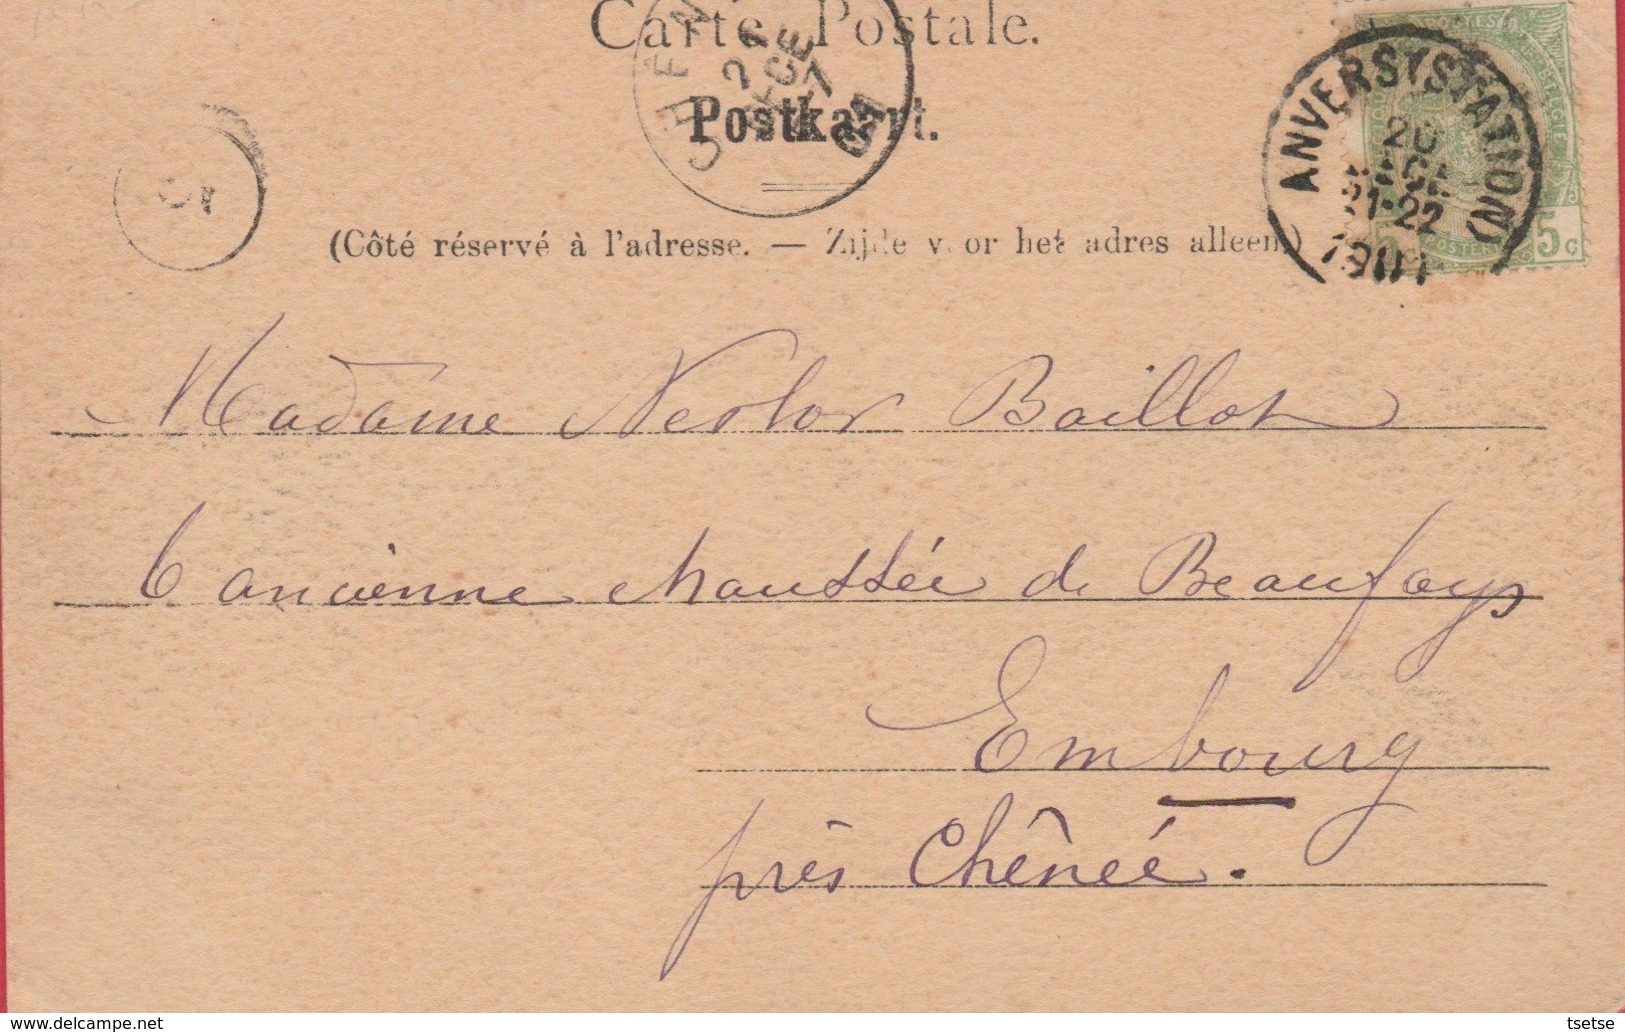 Carte Postale.
Postkaart.
(Côté réservé à l'adresse. — Zijde voor het adres alleen.)
ANVERS (STATION)
20
21-22
1901
5c
Madame Nestor Baillot
6 ancienne chaussée de Beaufays
Embourg
près Chênée.
tsetse
www.delcampe.net